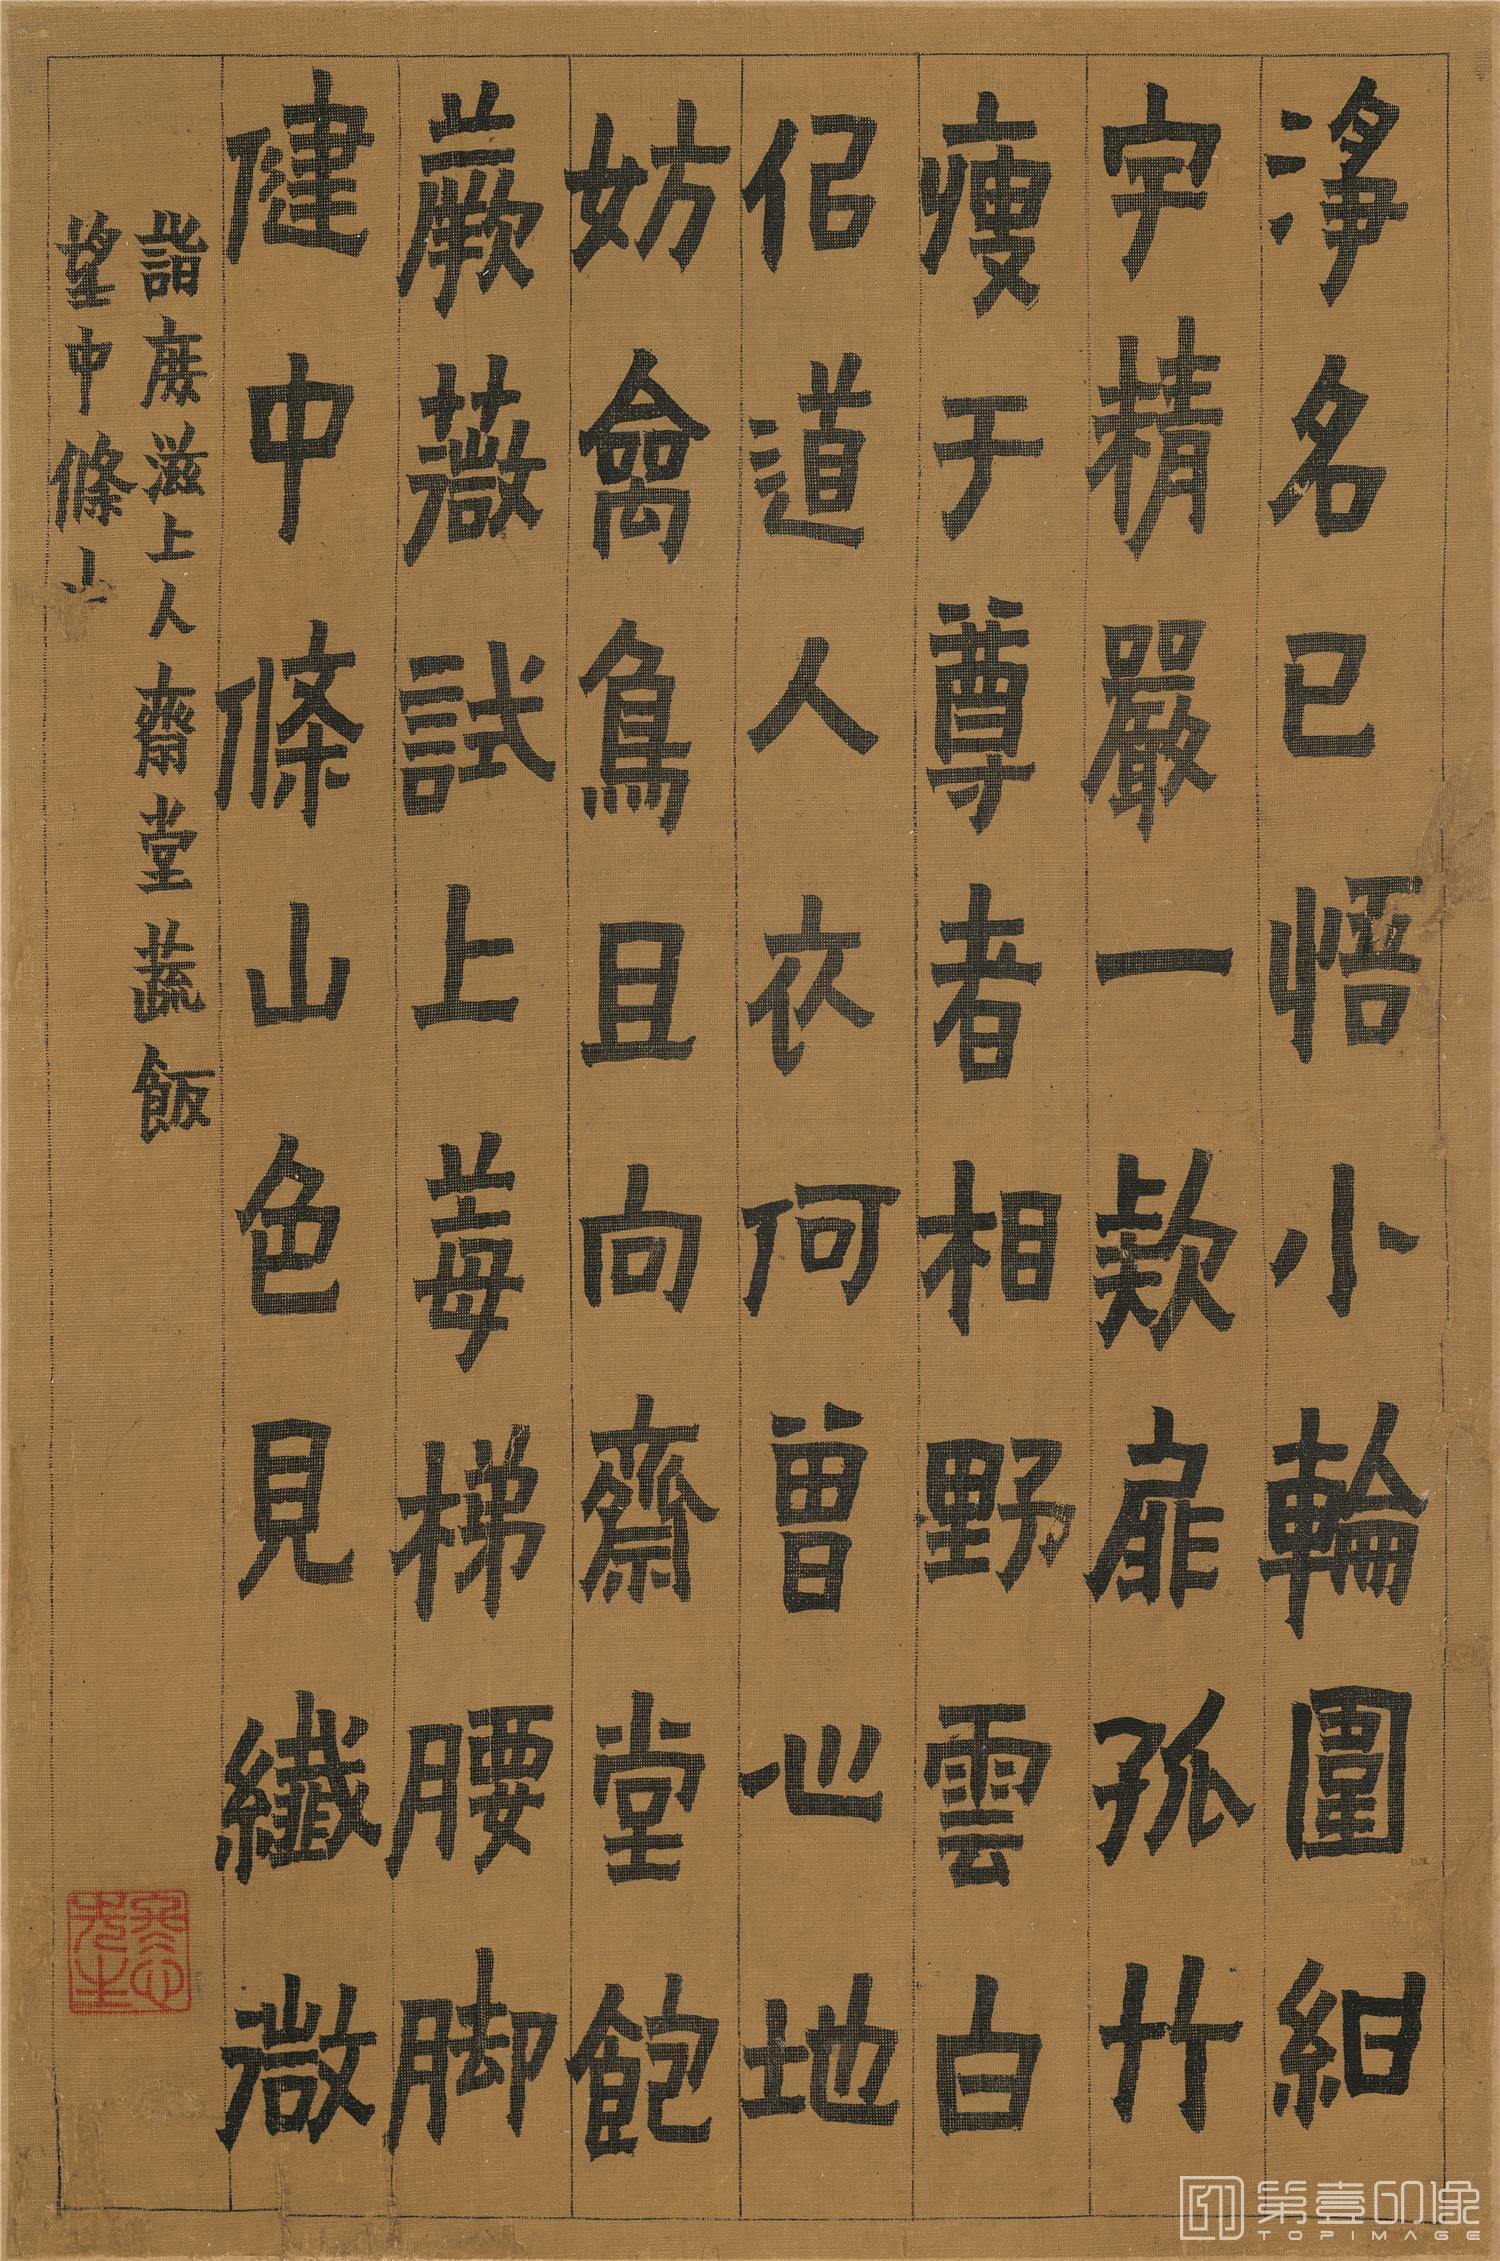 淨名已悟小輪圍紺
宇精嚴一款扉孤竹
瘦于尊者相野雲白
佀道人衣何曾心地
妨禽鳥且向齋堂飽
蕨薇試上莓梯腰脚
健中條山色見纖微
詣滋上人齋堂蔬飯
望中條山
冬心先生
第壹印像
TOPIMAGE